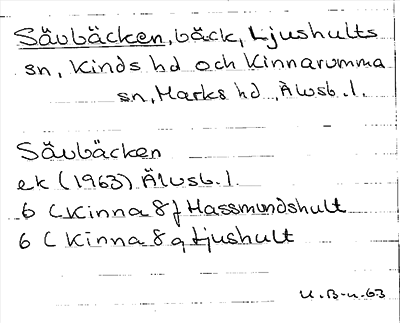 Sävbäcken, bäck, Ljushults
sn, Kinds hd och Kinnarumma
sn, Marks hd, Älvsb. l.
Sävbäcken
ek (1963) Älvsb. l
6 (Kinna 8 f Hassmundshult
6 (Kinna 8 g Ljushult
U. B-u. 63